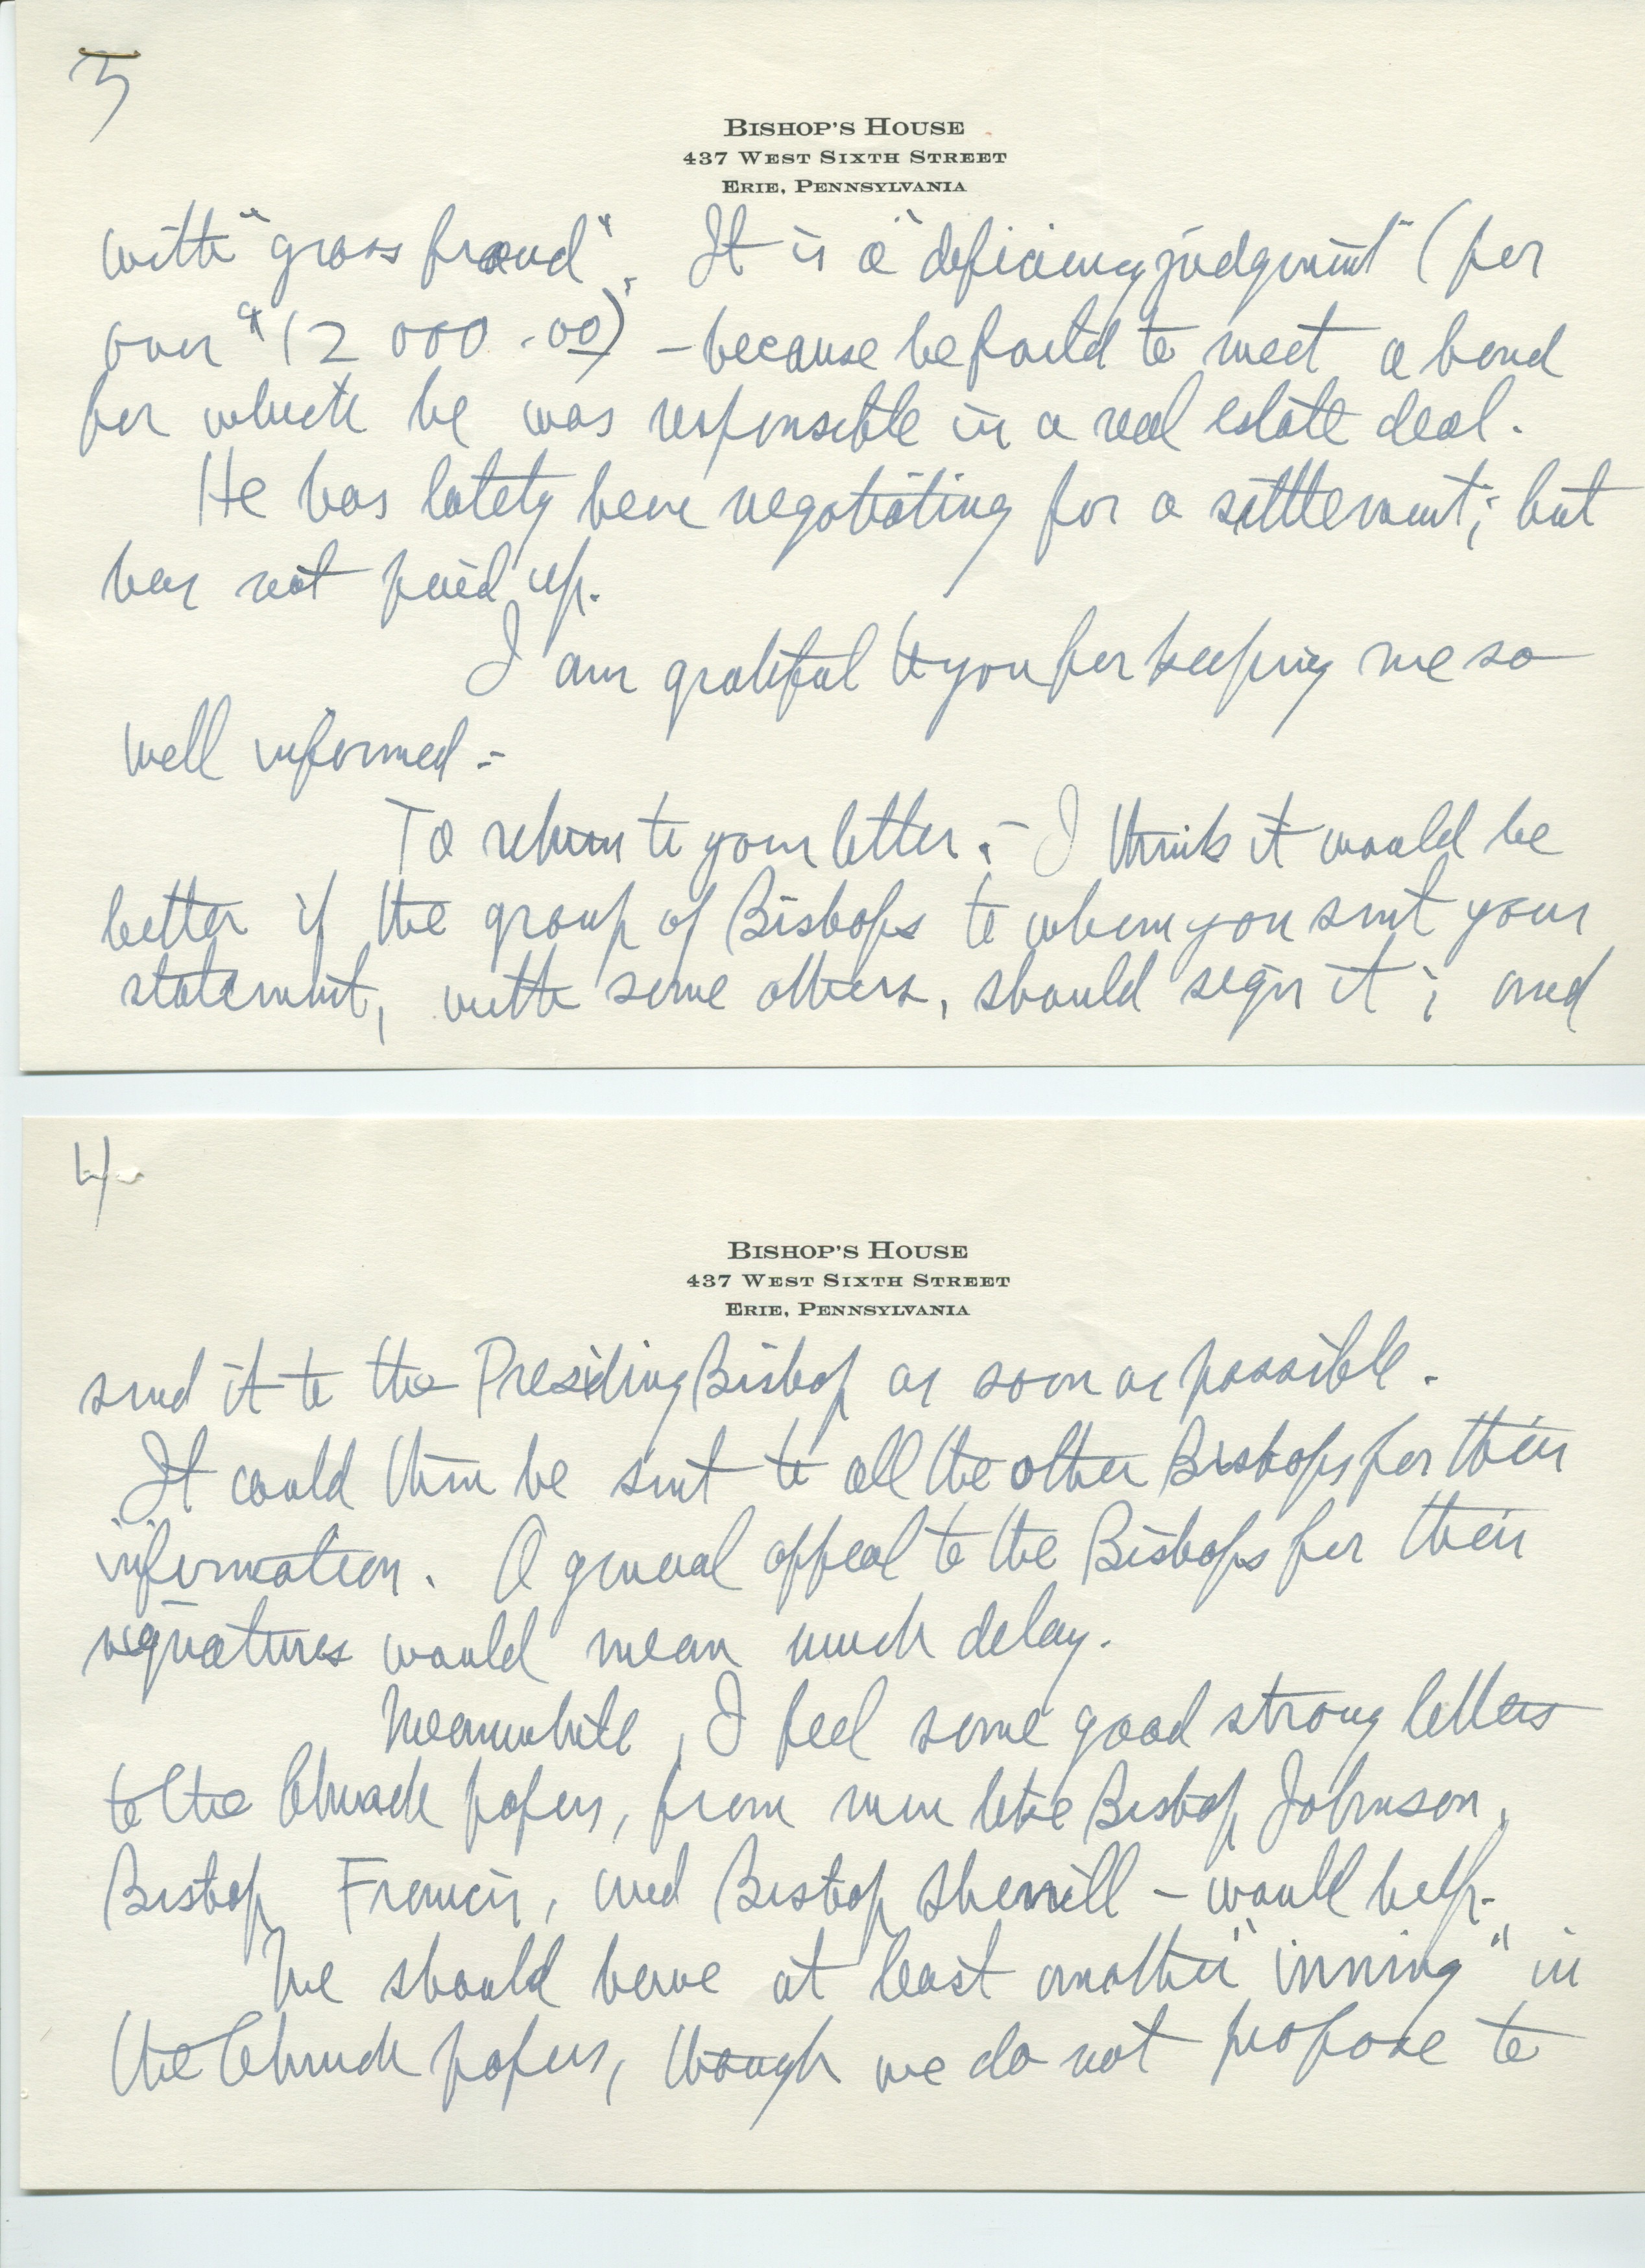 3
BISHOP'S HOUSE
437 WEST SIXTH STREET
ERIE, PENNSYLVANIA
with "gross fraud". It is a "deficiency judgment" (for
over "12 000.00)" - because he failed to meet a bond
for which he was responsible in a real estate deal.
He has lately been negotiating for a settlement; but
has not paid up.
I am grateful to you for keeping me so
well informed -
To return to your letter: - I think it would be
better if the group of Bishops to whom you sent your
statement, with some others, should sign it; and
4
BISHOP'S HOUSE
437 WEST SIXTH STREET
ERIE, PENNSYLVANIA
send it to the Presiding Bishop as soon as possible.
It could then be sent to all the other Bishops for their
information. A general appeal to the Bishops for their
signatures would mean much delay.
Meanwhile, I feel some good strong letters
to the Church papers, from men like Bishop Johnson,
Bishop Francis, and Bishop Sherrill - would help.
We should have at least another "inning" in
the Church papers, though we do not propose to